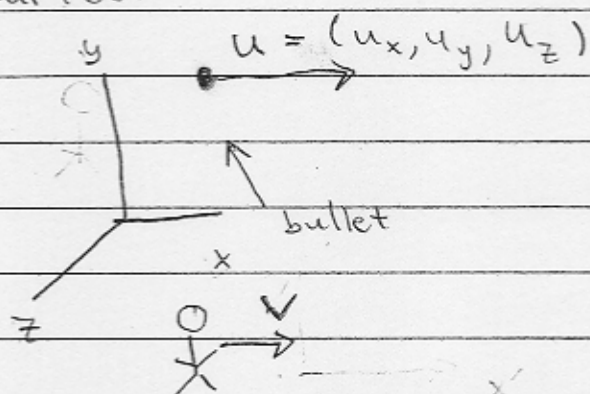 y
u = (u_x, u_y, u_z)
bullet
x
z
v